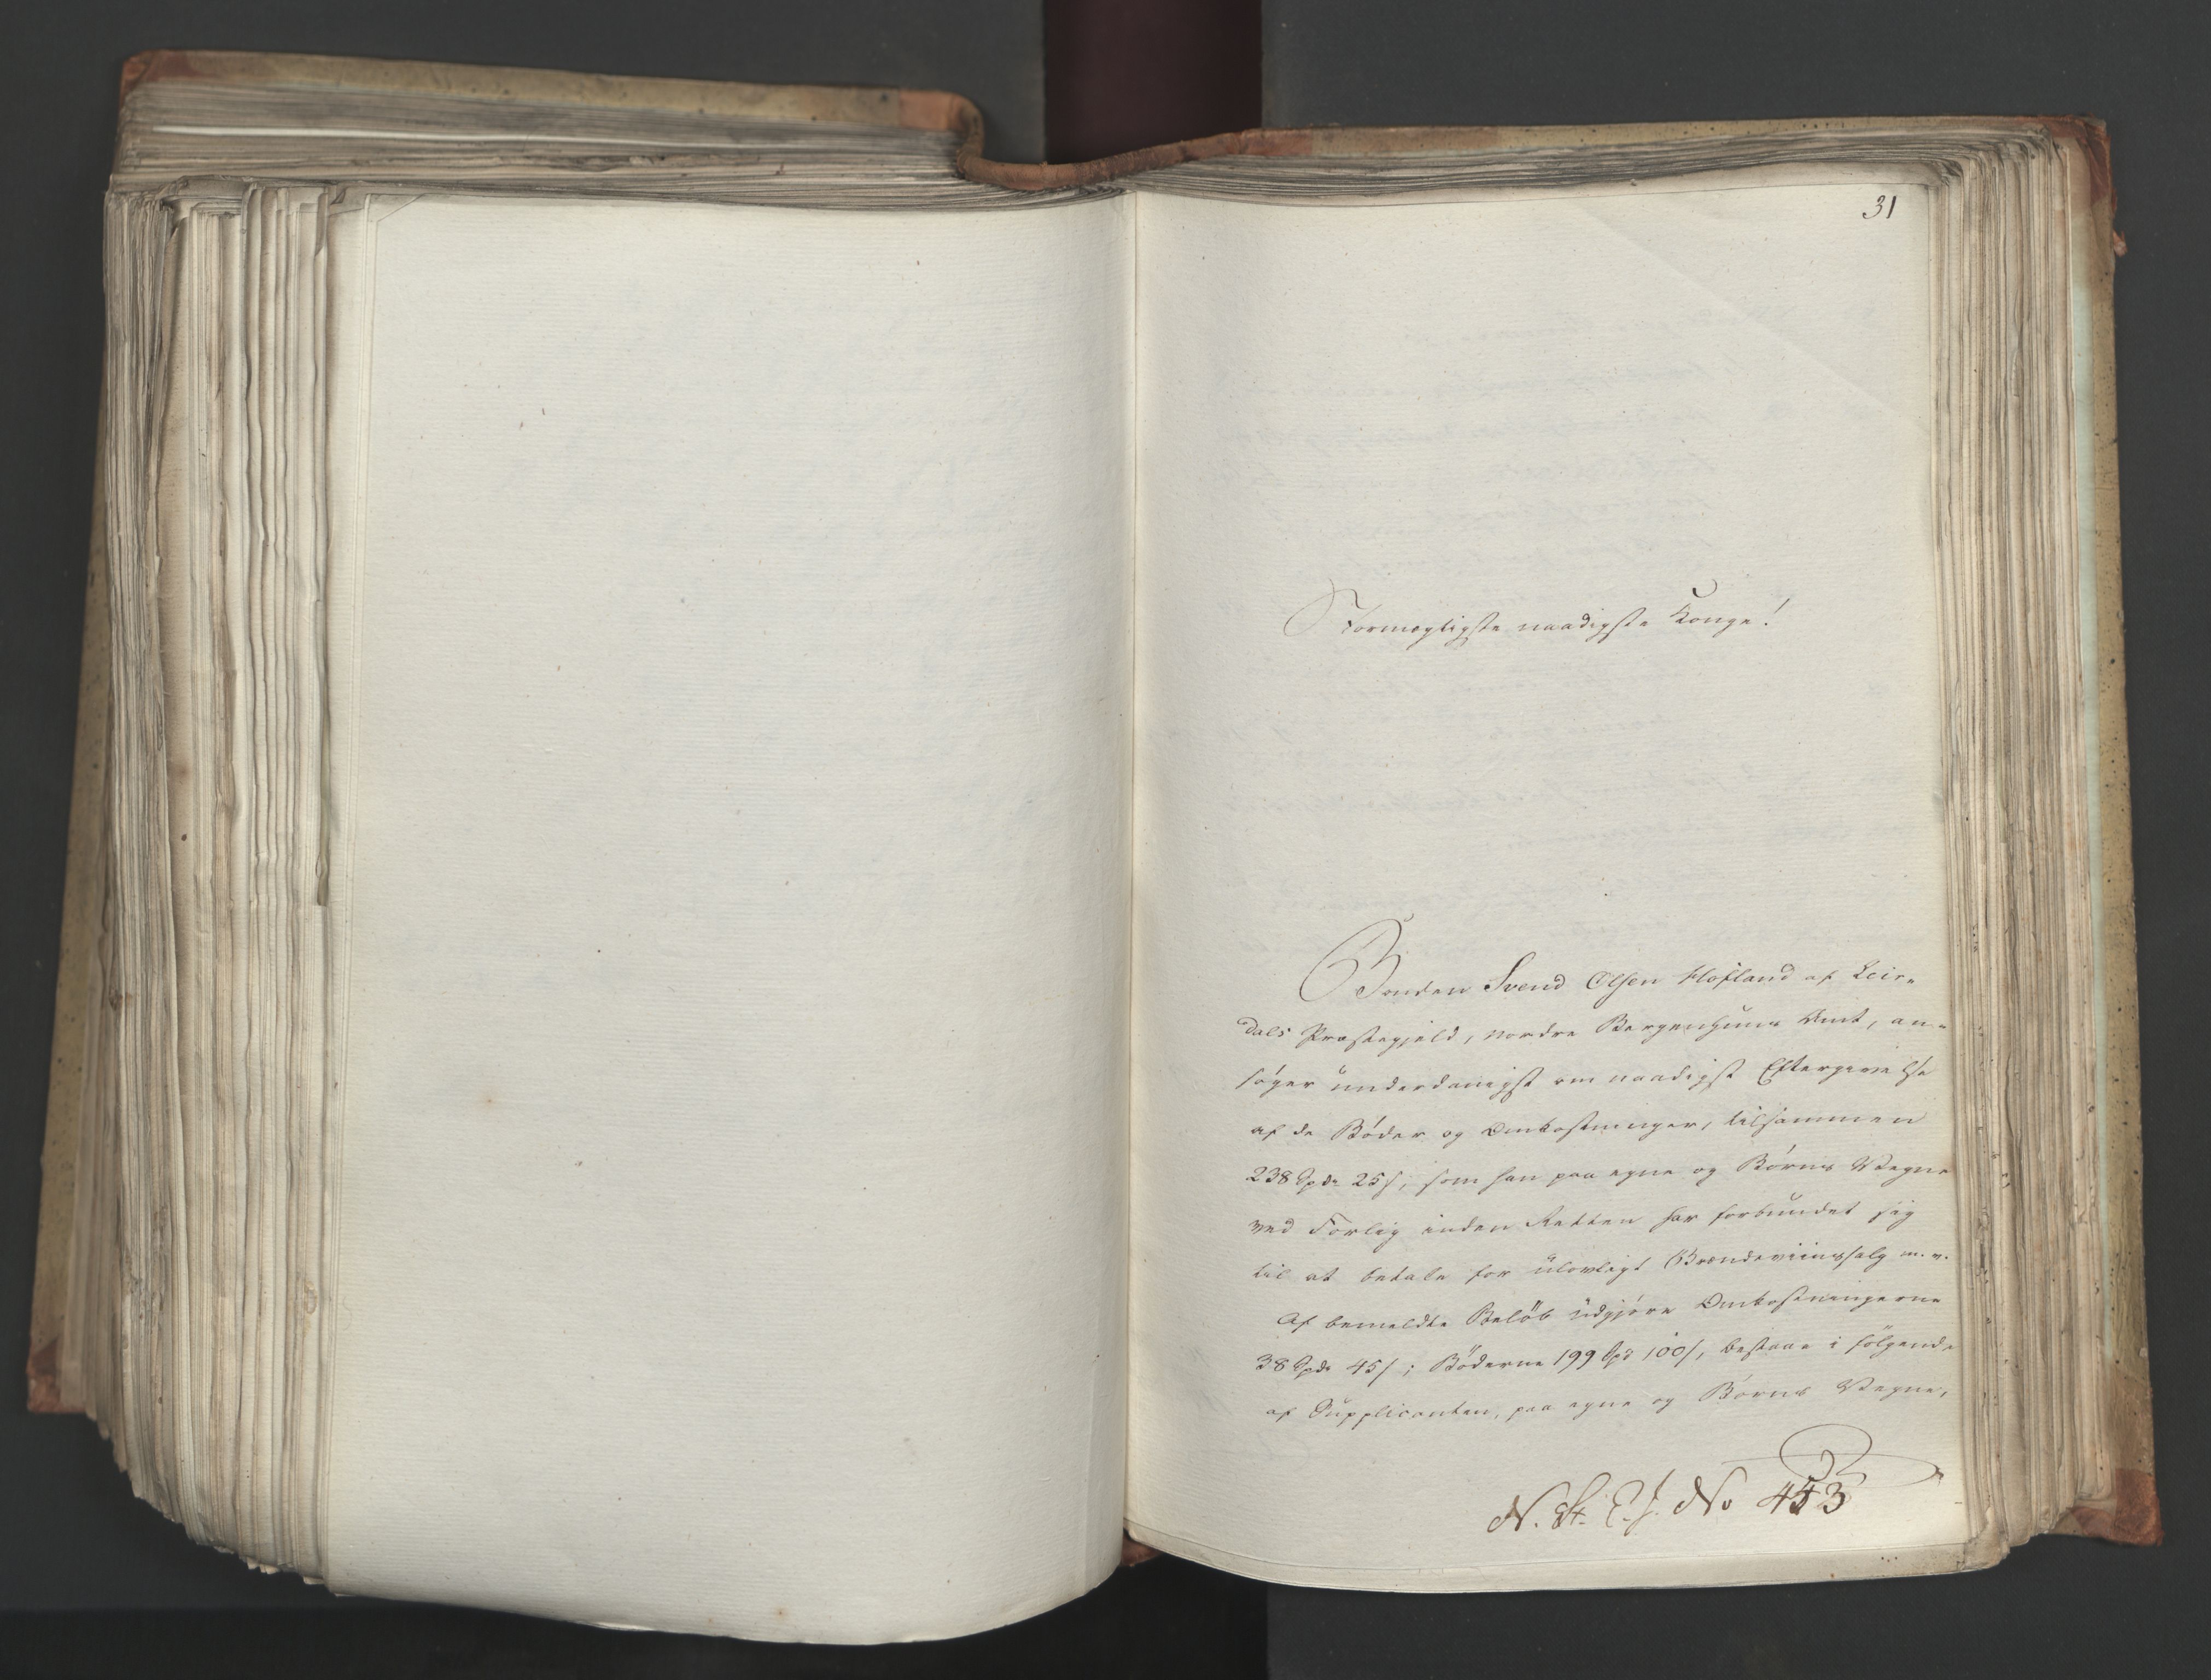 31
Stormægtigste naadigste Konge!
Bonden Svend Olsen Hofland af Leir-
dals Præstegjeld, nordre Bergenhuus Amt, an-
søger underdanigst om naadigst Eftergivelse
af de Bøder og Omkostninger, tilsammen
238 Spd. 25 s, som han paa egne og Børns Vegne
ved Forlig inden Retten har forbundet sig
til at betale for ulovligt Brændeviinssalg m. v.
Af bemeldte Beløb udgjøre Omkostningerne
38 Spd. 45 s; Bøderne 199 Spd 100 s, bestaae i følgende
af Supplicanten, paa egne og Børns Vegne,
N. St. E. J. No 453